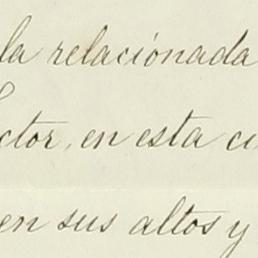 la relaciónada
ctor, en esta
en sus altos y